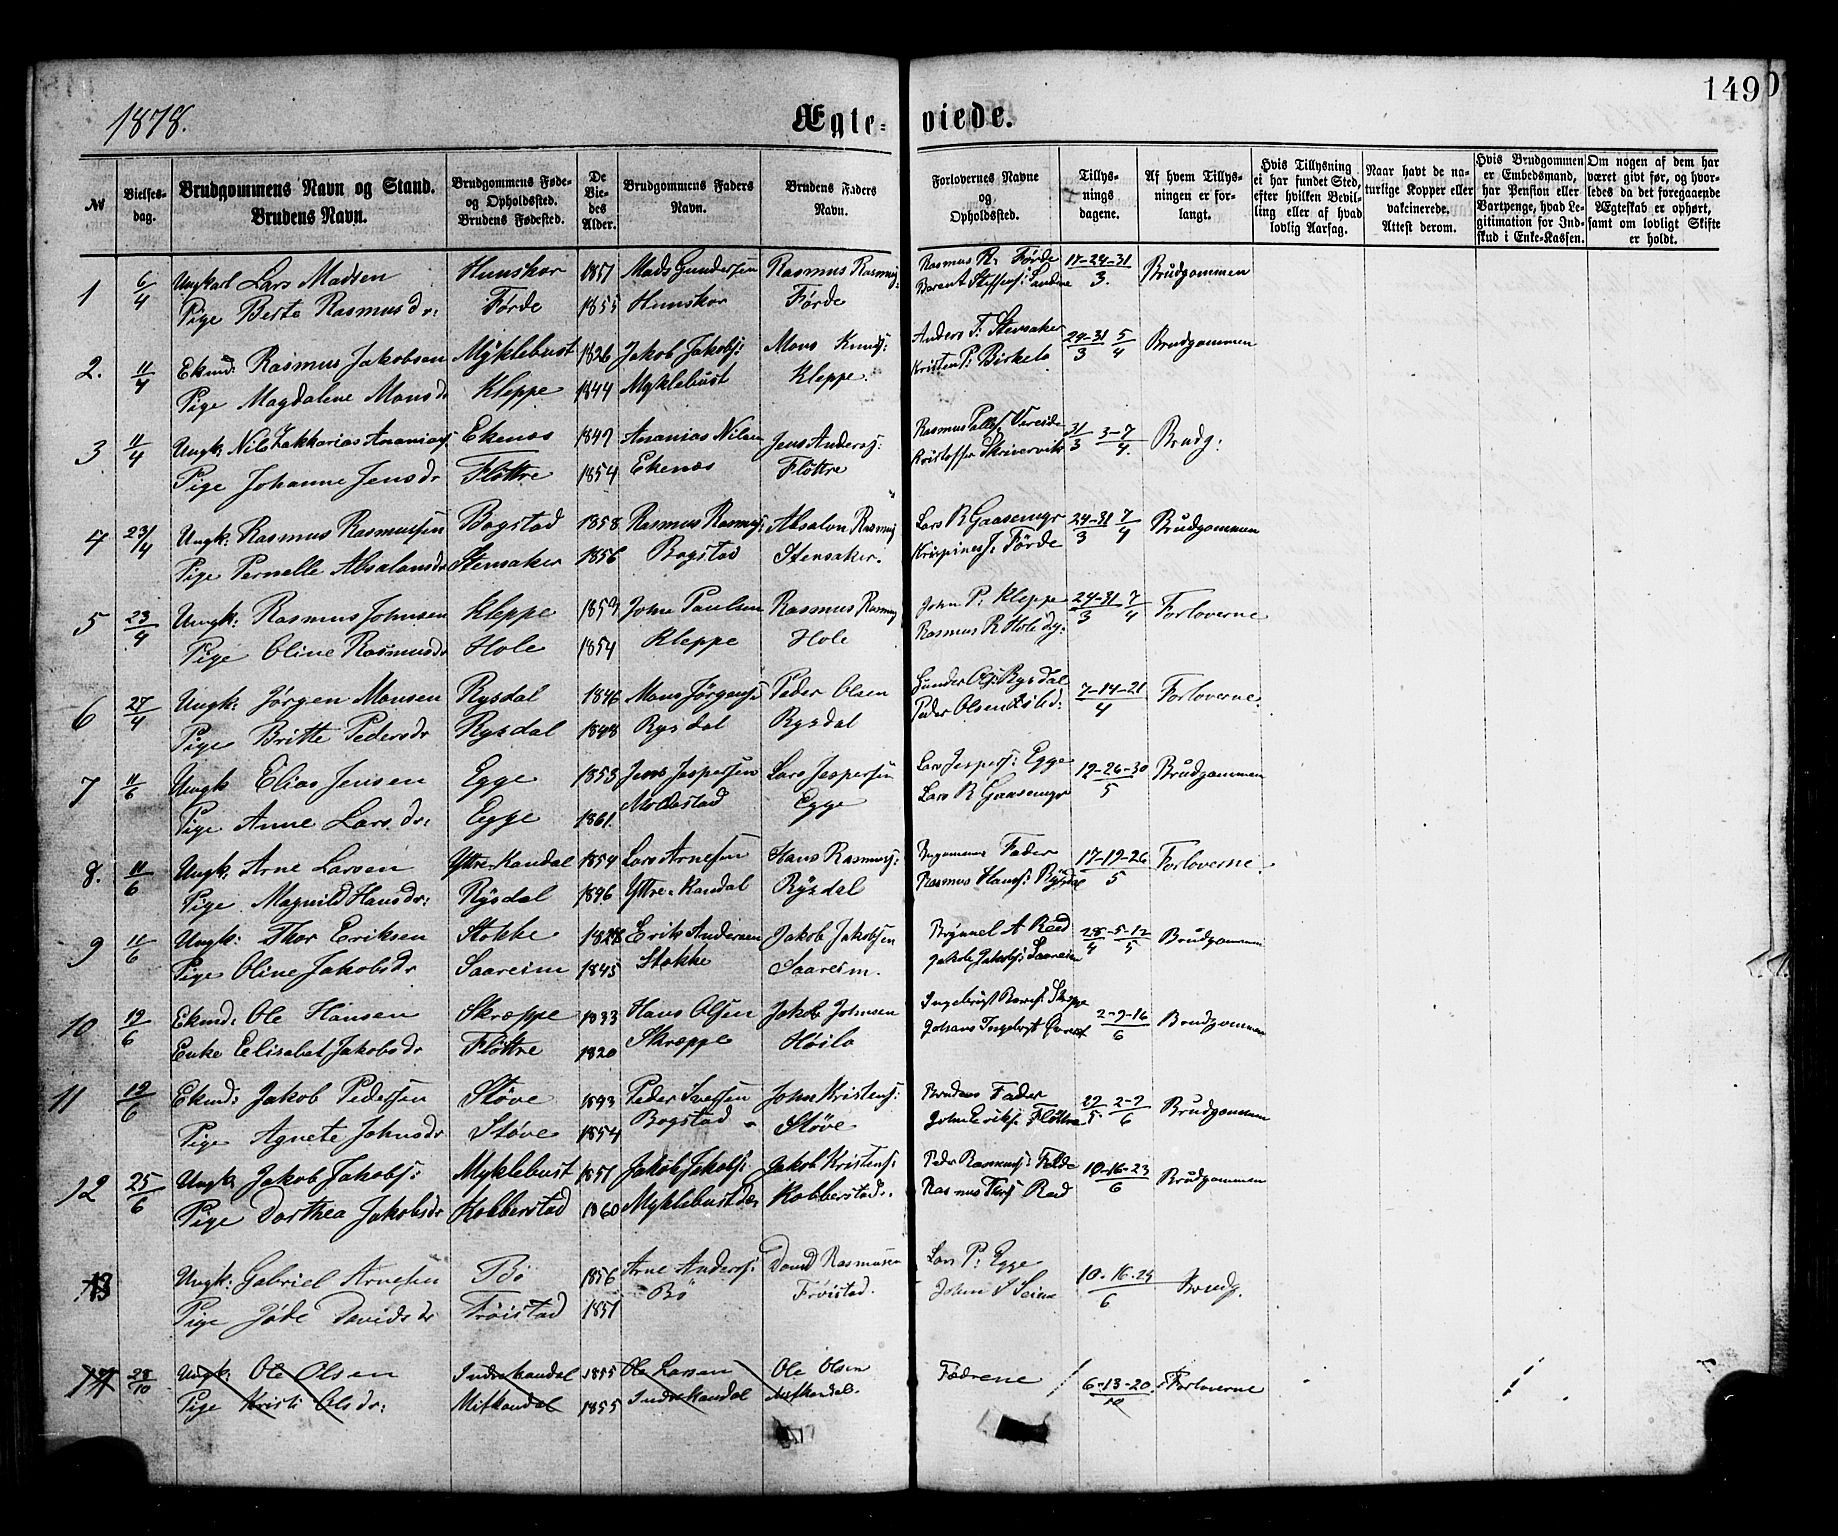 149
1878.
Ægte-viede.
№
Vielses-dag.
Brudgommens Navn og Stand.
Brudens Navn.
Brudgommens Føde- og Opholdssted.
Brudens Fødested.
De Vie-des Alder.
Brudgommens Faders Navn.
Brudens Faders Navn.
Forlovernes Navne og Opholdssted.
Tillys-nings dagene.
Af hvem Tillys-ningen er for-langt.
Hvis Tillysning ei har fundet Sted, efter hvilken Bevil-ling eller af hvad lovlig Aarsag.
Naar havt de na-turlige Kopper eller vakcinerede. Attest derom.
Hvis Brudgommen er Embedsmand, har Pension eller Vartpenge, hvad Le-gitimation for Ind-skud i Enke-Kassen.
Om nogen af dem har været givt før, og hvor-ledes da det foregaaende Ægteskab er ophørt, samt om lovligt Skifte er holdt.
1 6/4 Ungkarl Lars Madsen Hunskor 1851 Mads Gundersen Rasmus Rasmus: Rasmus R. Førde 17-24-31/3. Brudgommen
Pige Berte Rasmusdr: Førde 1855 Hunskor Førde Berent Steffens: Sandene
2. 11/4 Ekmd: Rasmus Jakobsen Myklebust 1826 Jakob Jakobs: Mons Knuds: Anders T: Stensaker 24-31/3 5/4 Brudgommen
Pige Magdalene Monsdr Kleppe 1844 Myklebust Kleppe. Kristen P: Birkelo
3 11/4 Ungk: Nils Zakkarias Ananias: Ekenæs 1847 Ananias Nilsen Jens Anders: Rasmus Vereide 31/3 3-7/4. Brudg:
Pige Johanne Jensdr Fløttre 1854 Ekenæs Flottre Kristoffer Skrivervik
4 23/4 Ungk: Rasmus Rasmussen Bogstad 1858 Rasmus Rasmus: Absalon Rasmus Lars R Gaasemyr 24-31/3 7/4 Brudgommen
Pige Pernelle Absalonsdr Stensaker 1856 Bogstad Stensaker. Førde
5 23/4 Ungk: Rasmus Johnsen Kleppe 1859 John Paulsen Rasmus Rasmus John P: Kleppe 24-31/3 7/4 Forloverne
Pige Oline Rasmusdr Hole 1854 Kleppe Hole Rasmus R Hole
6 27/4 Ungk: Jørgen Monsen Rysdal 1846 Mons Jørgens: Peder Olsen Gunder Ols: Rysdal 7-14-21/4 Forloverne.
Pige Britte Pedersdr Rysdal 1848 Rysdal Rysdal Peder Olsen
7 11/6 Ungk Elias Jensen Egge 1853 Jens Jespersen Lars Jespersen Lars Jespers: Egge 19-26-30/5 Brudgommen
Pige Anne Larsdr: Egge 1861. Moldestad Egge Lars R Gaasemyr
8. 11/6 Ungk: Arne Larsen Yttre-Kandal 1854 Lars Arnesen Hans Rasmus: Fader 17-19-26/5 Forloverne
Pige Magnild Hansdr: Rysdal 1896 Yttre-Kandal Rysdal Rasmus Hans: Rysdal
9 11/6 Ungk: Thor Eriksen Stokke Erik Andersen Jakob Jakobsen Brynnel A Reed 28/4-5-12/5 Brudgommen
Pige Oline Jakobsdr Saareim 1845 Stokke Saareim. Jakob Jakobs: Saareim
10 12/6 Ekmd: Ole Hansen Skræppe 1833 Hans Olsen Jakob Johnsen 2-9-16/6 Brudgommen
Enke Elisabet Jakobsdr Fløttre 1820 Skræppe Høilo
11 12/6 Ekmd: Jakob Pedersen Støve 1893 Peder Iversen John Kristens: Brudens Fader 29/5 2-9/6 Brudgommen
Pige Agnete Johnsdr Støve 1854 Bogstad Støve John Eriks: Fløttre
12 25/6 Ungk: Jakob Jakobs: Myklebust 1857 Jakob Jakobs: Jakob Kristens: Peder Rasmus: Felde 10-16-23/6 Brudgommen
Pige Dorthea Jakobsdr Kobberstad 1860 Myklebust Kobberstad. Rasmus Reed
13 Ungk: Gabriel Arnesen Bø 1856 Arne Anders: David Rasmusen Lars P: Egge 10-16-24/6 Brudg.
Pige Davidsdr Frøistad 1851 Bø Frøistad. John
14 28/10 Ungk: Ole Olsen Indrekandal 1855 Ole Larsen Ole Olsen Fædrene 6-13-20/10 Forloverne
Pige Kristi Olsdr: Mitkandal 1855 Indrekandal Mitkandal